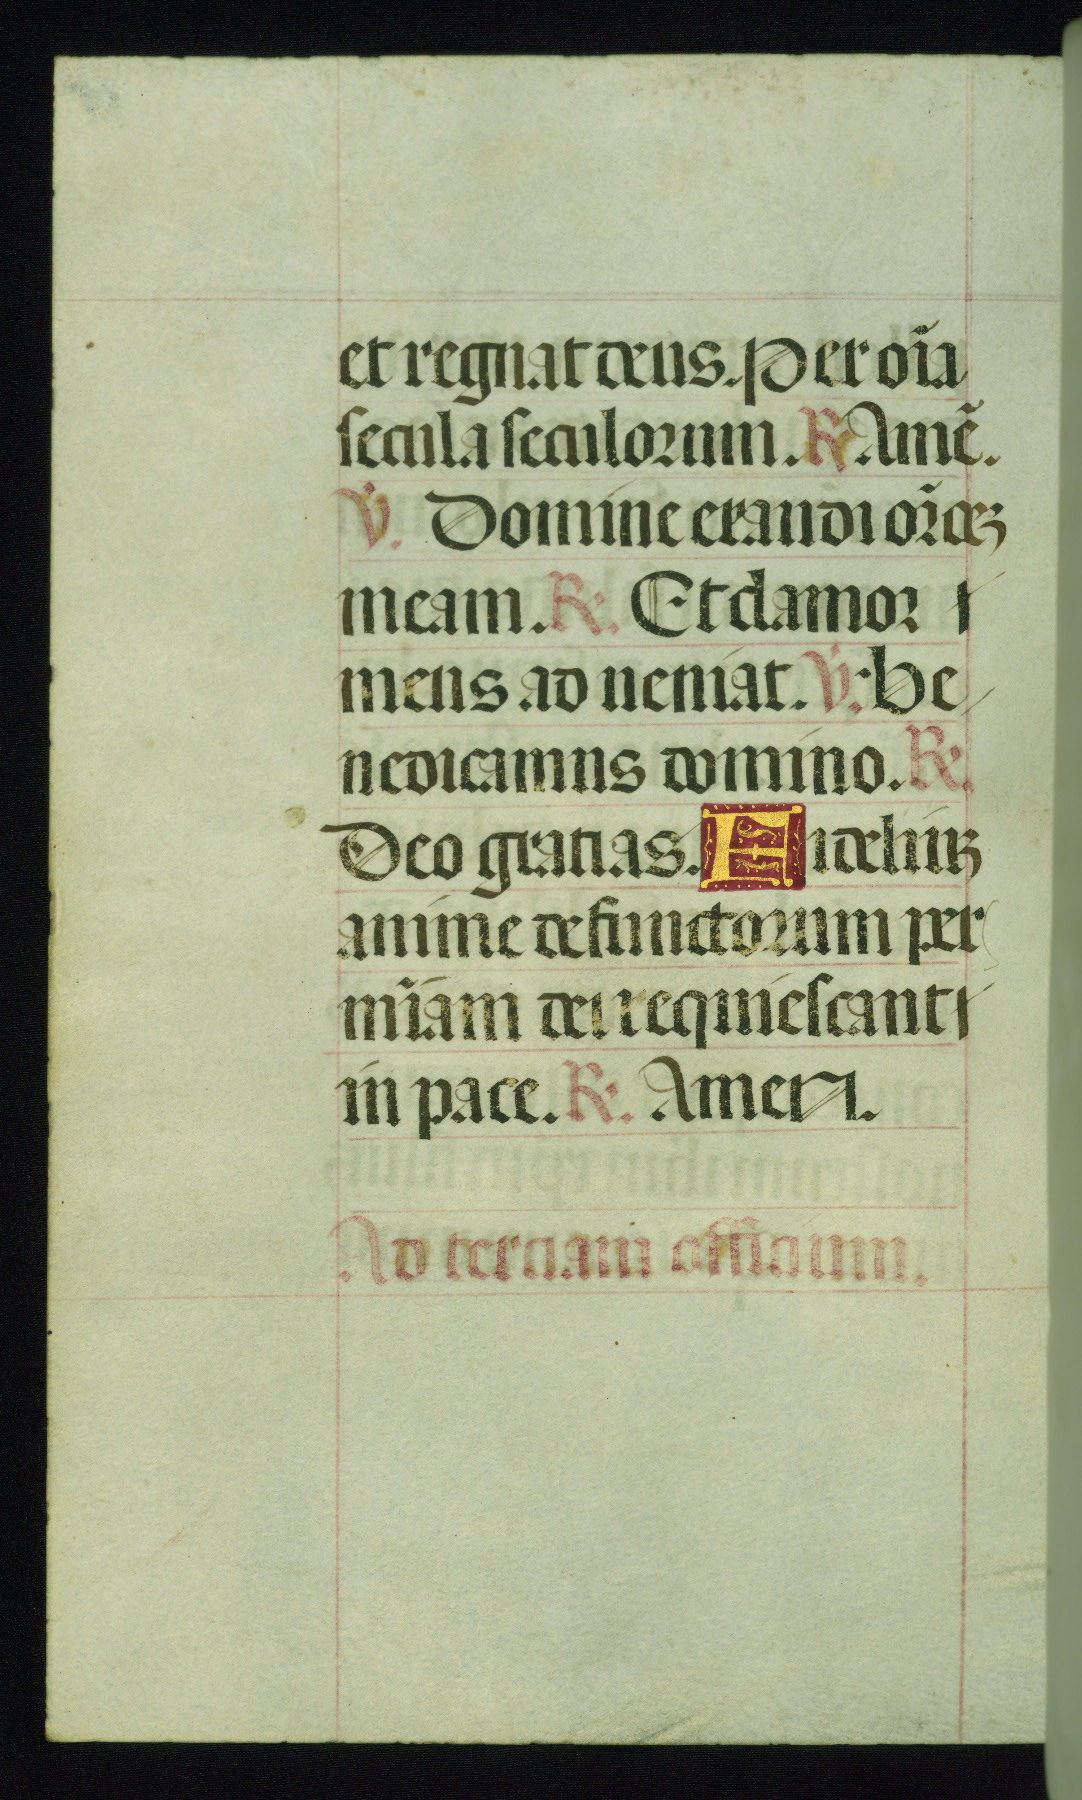 et regnat deus. Per oı̃a
secula seculorum. ℟ Amẽ.
℣. Domine exaudi or̃oeꝫ
meam. ℟. Et clamor
meus ad ueniat. ℣. Be
nedicamus domino. ℟.
Deo gratias. Fideliuꝫ
anime defunctorum per
mı̃am dei requiescant
in pace. ℟. Amen.
Ad terciam officium.